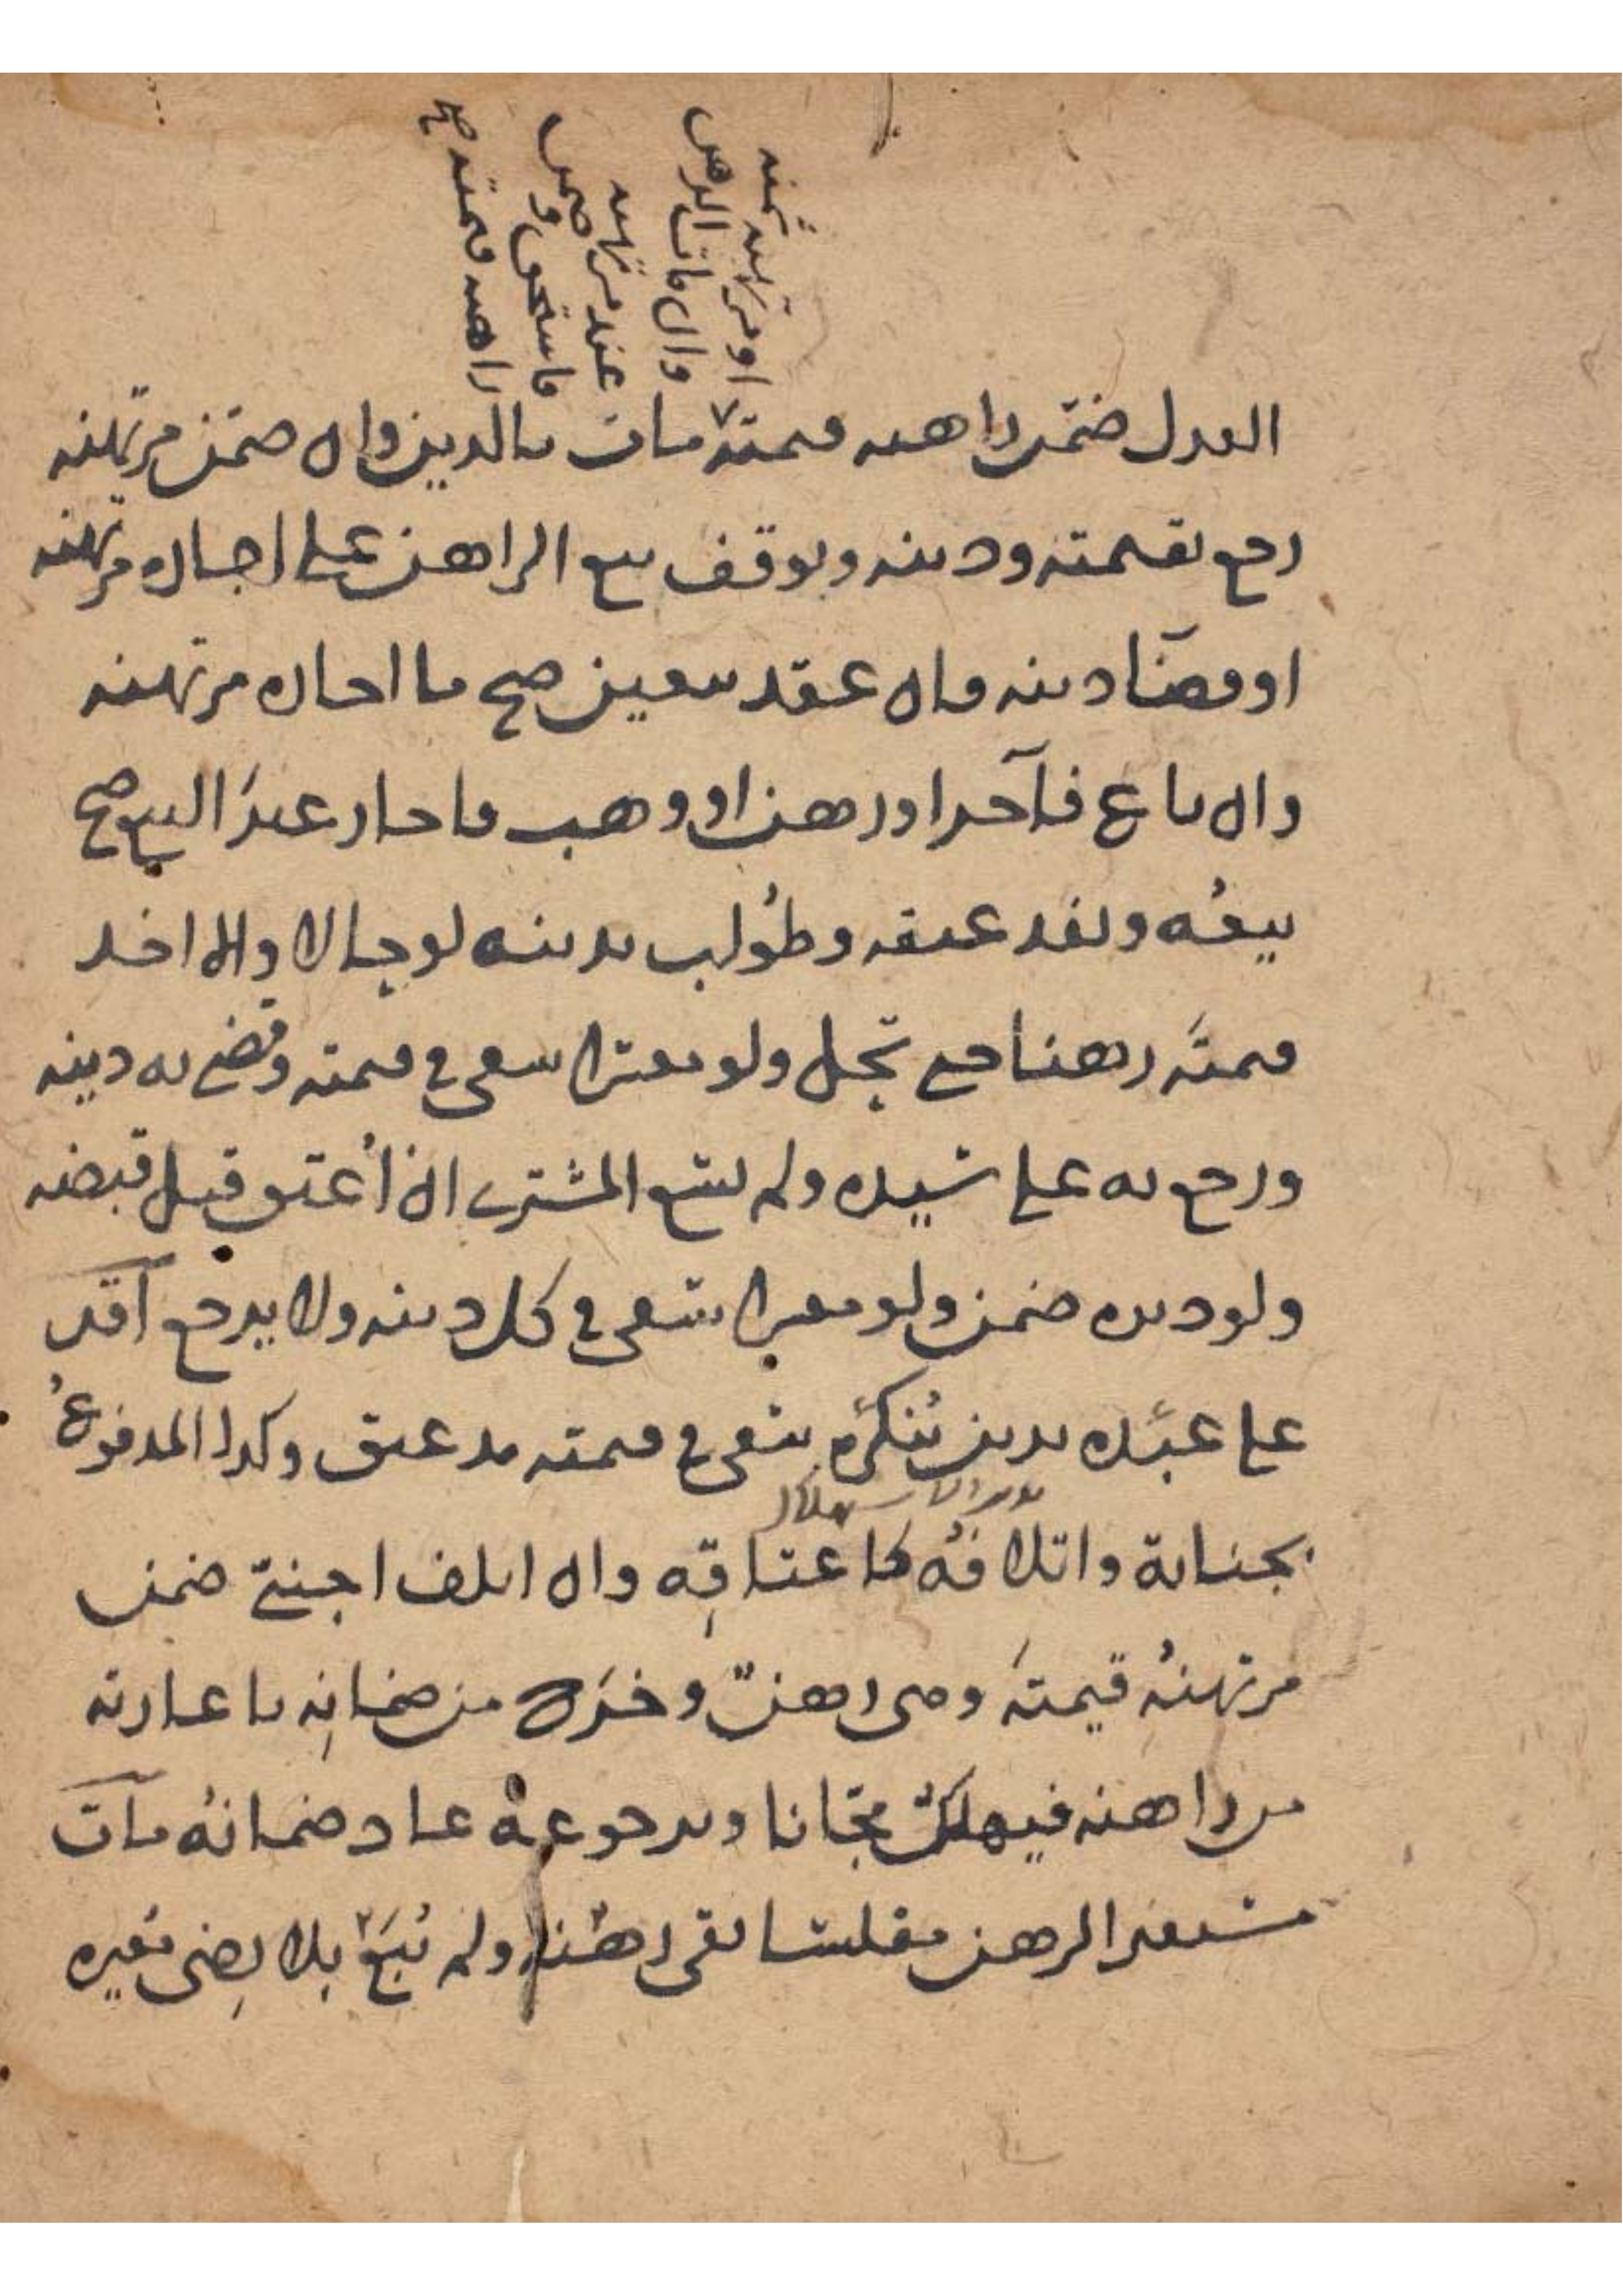 او مرتهنه ثمنه
وان مات الرهن
عند مرتهنه
فاستحق وضمن
راهنه قيمته صح
العدل ضمن راهنه قيمته مات بالدين وان ضمن مرتهنه
رجع بقيمته ودينه ويوقف بيع الراهن على اجازه مرتهنه
او قضا دينه وان عقد بيعين صح ما اجازه مرتهنه
وان باع فآجر او رهن او وهب فاجاز غير البيع صح
بيعُه ونفذ عتقه وطُولب بدينه لو حالا والا اخذ
قيمتَه رهنا حتى تحل ولو معسرا سعى في قيمته وقضى به دينه
ورجع به على سيده ولم يسع المشترى اذا أعتق قبل قبضه
ولو دبره ضمن ولو معسرا سعى في كل دينه ولا يرجع أقر
على عبده بدين ينكره يسعى في قيمته مذ عتق وكذا المدفوعُ
بجناية واتلافُه كاعتاقِه وان اتلف اجنبي ضمن
مرتهنُه قيمتَه وهي رهنٌ وخرج من ضمانِه باعارته
من راهنه فيهلكُ مجّانا وبرجوعه عاد ضمانُه مات
مستعير الرهن مفلسا بقى رهنُه ولم يُبَع بلا رِضى مُعيره